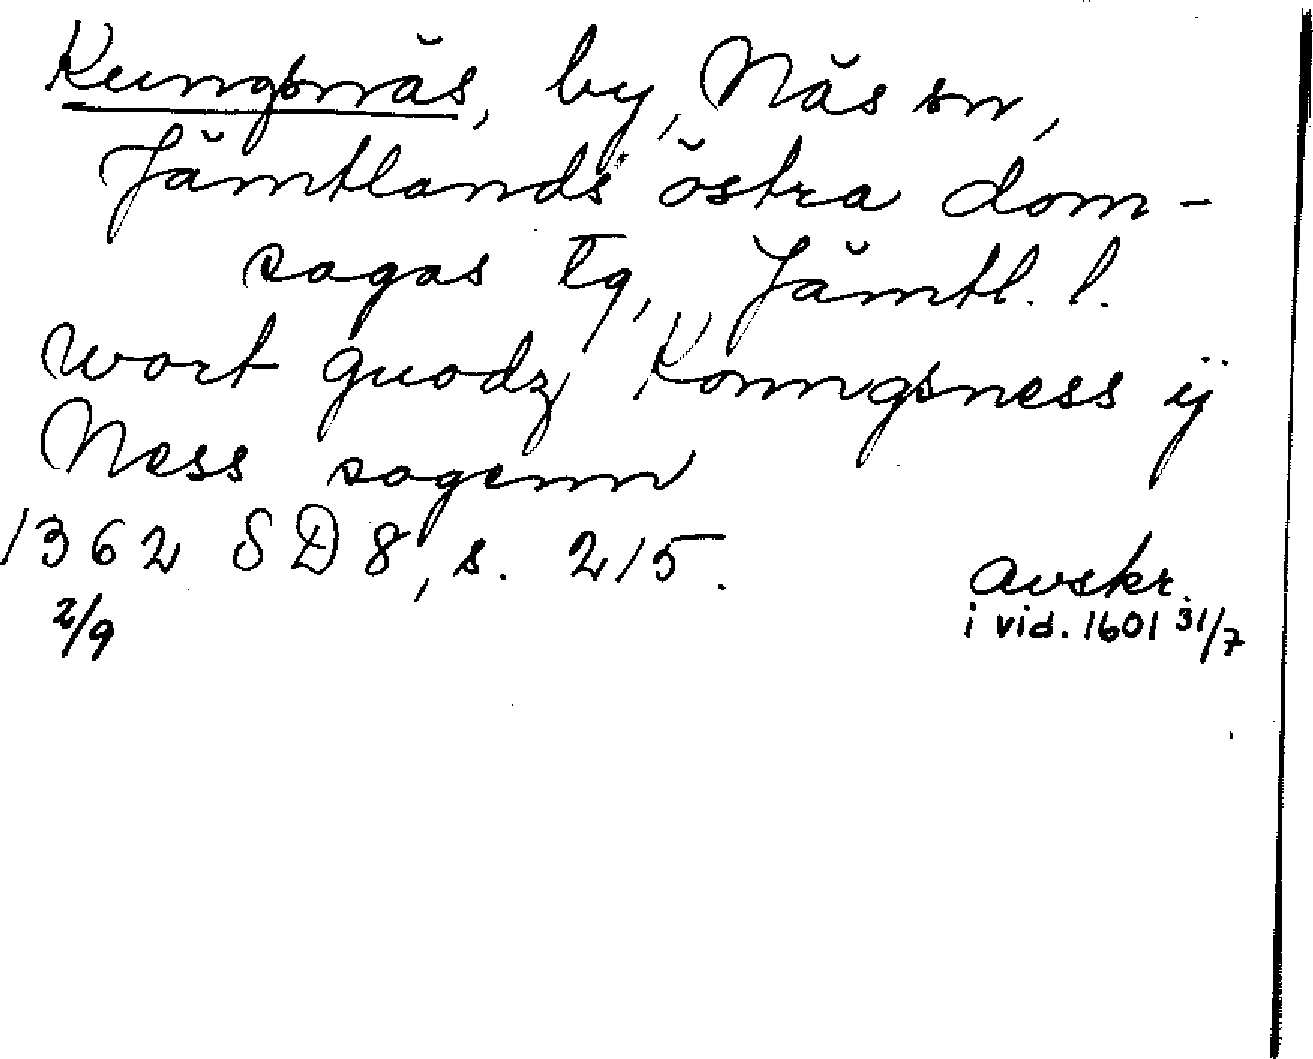 Kungsnäs, by, Näs sn,
Jämtlands östra dom-
sagas tg, Jämtl. l.
wort guodz Konngsness ij
Ness sogenn
1362 SD 8, s. 215.
2/9
avskr.
i vid. 1601 31/7